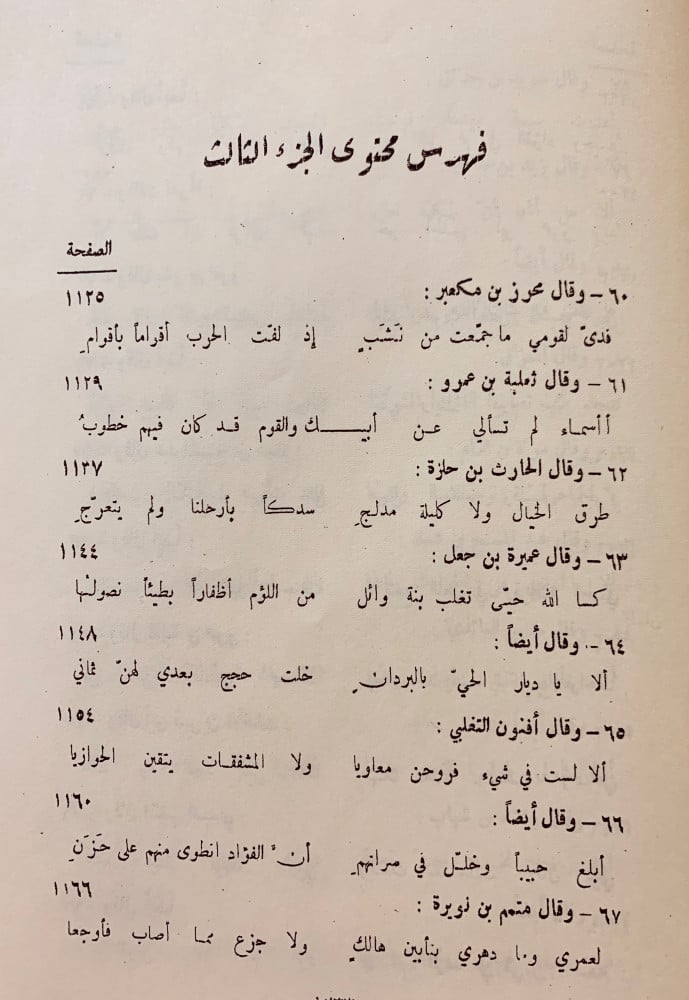 فهرس محتوى الجزء الثالث
الصفحة
٦٠ – وقال محرز بن مكعبر : ١١٢٥
فدىً لقومي ما جمّعت من نَشَبٍ إذ لفّت الحرب أقواماً بأقوامِ
٦١ – وقال ثعلبة بن عمرو : ١١٢٩
أأسماء لم تسألي عن أبيـــك والقوم قد كان فيهم خطوبُ
٦٢ – وقال الحارث بن حلزة : ١١٣٧
طرق الخيال ولا كليلة مدلجِ سدكاً بأرحلنا ولم يتعرّجِ
٦٣ – وقال عميرة بن جعل : ١١٤٤
كسا الله حيّى تغلب بنة وائل من اللؤم أظفاراً بطيئاً نصولُها
٦٤ – وقال أيضاً : ١١٤٨
ألا يا ديار الحيّ بالبردانِ خلت حجج بعدي لهنّ ثماني
٦٥ – وقال أفنون التغلبي : ١١٥٤
ألا لست في شيء فروحن معاويا ولا المشفقات يتقين الحوازيا
٦٦ – وقال أيضاً : ١١٦٠
أبلغ حبيباً وخلّل في سراتهمِ أنّ الفؤاد انطوى منهم على حَزَنِ
٦٧ – وقال متمم بن نويرة : ١١٦٦
لعمري وما دهري بتأبين هالكٍ ولا جزع مما أصاب فأوجعا